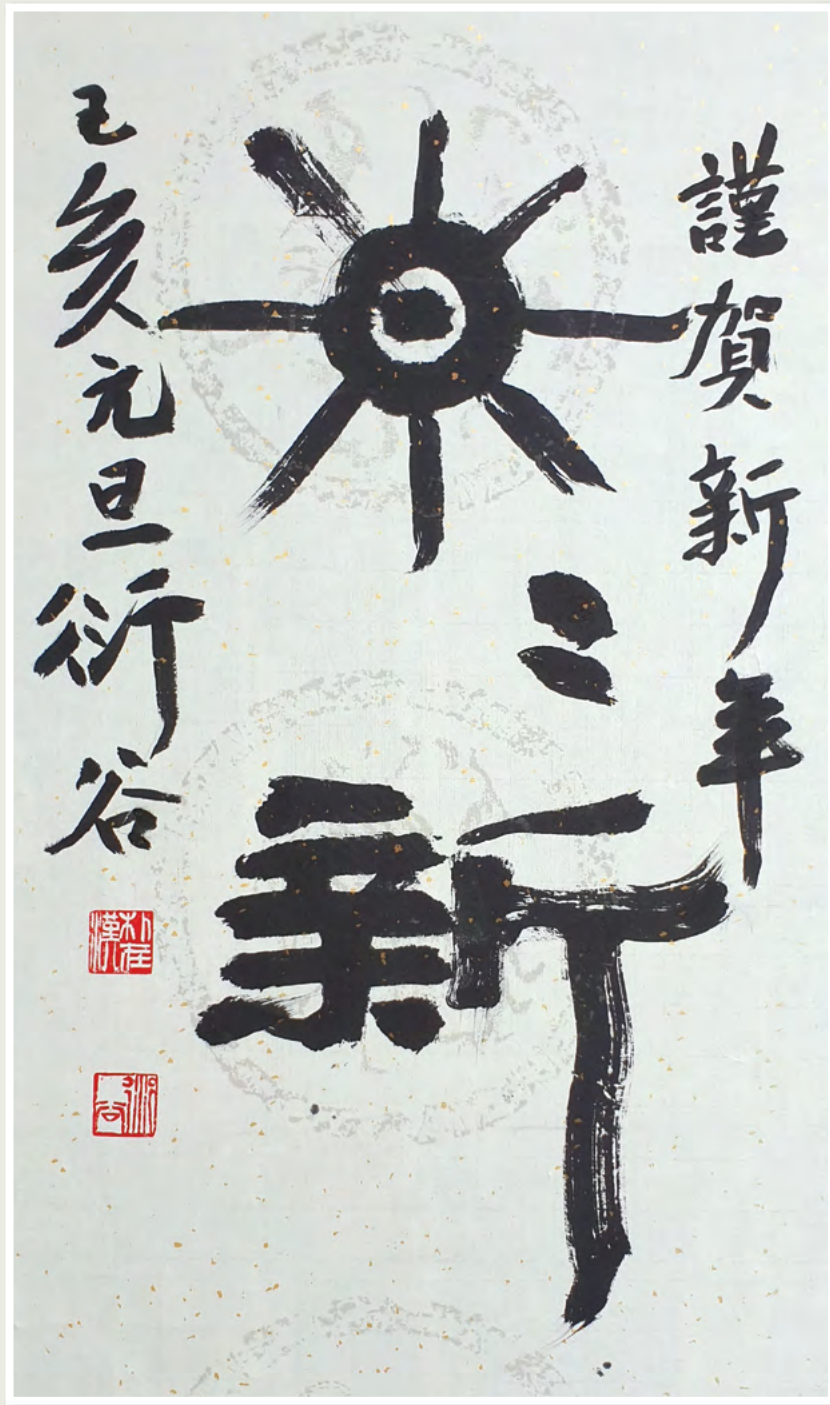 謹賀新年
日〻新
己亥元旦衍谷
衍谷